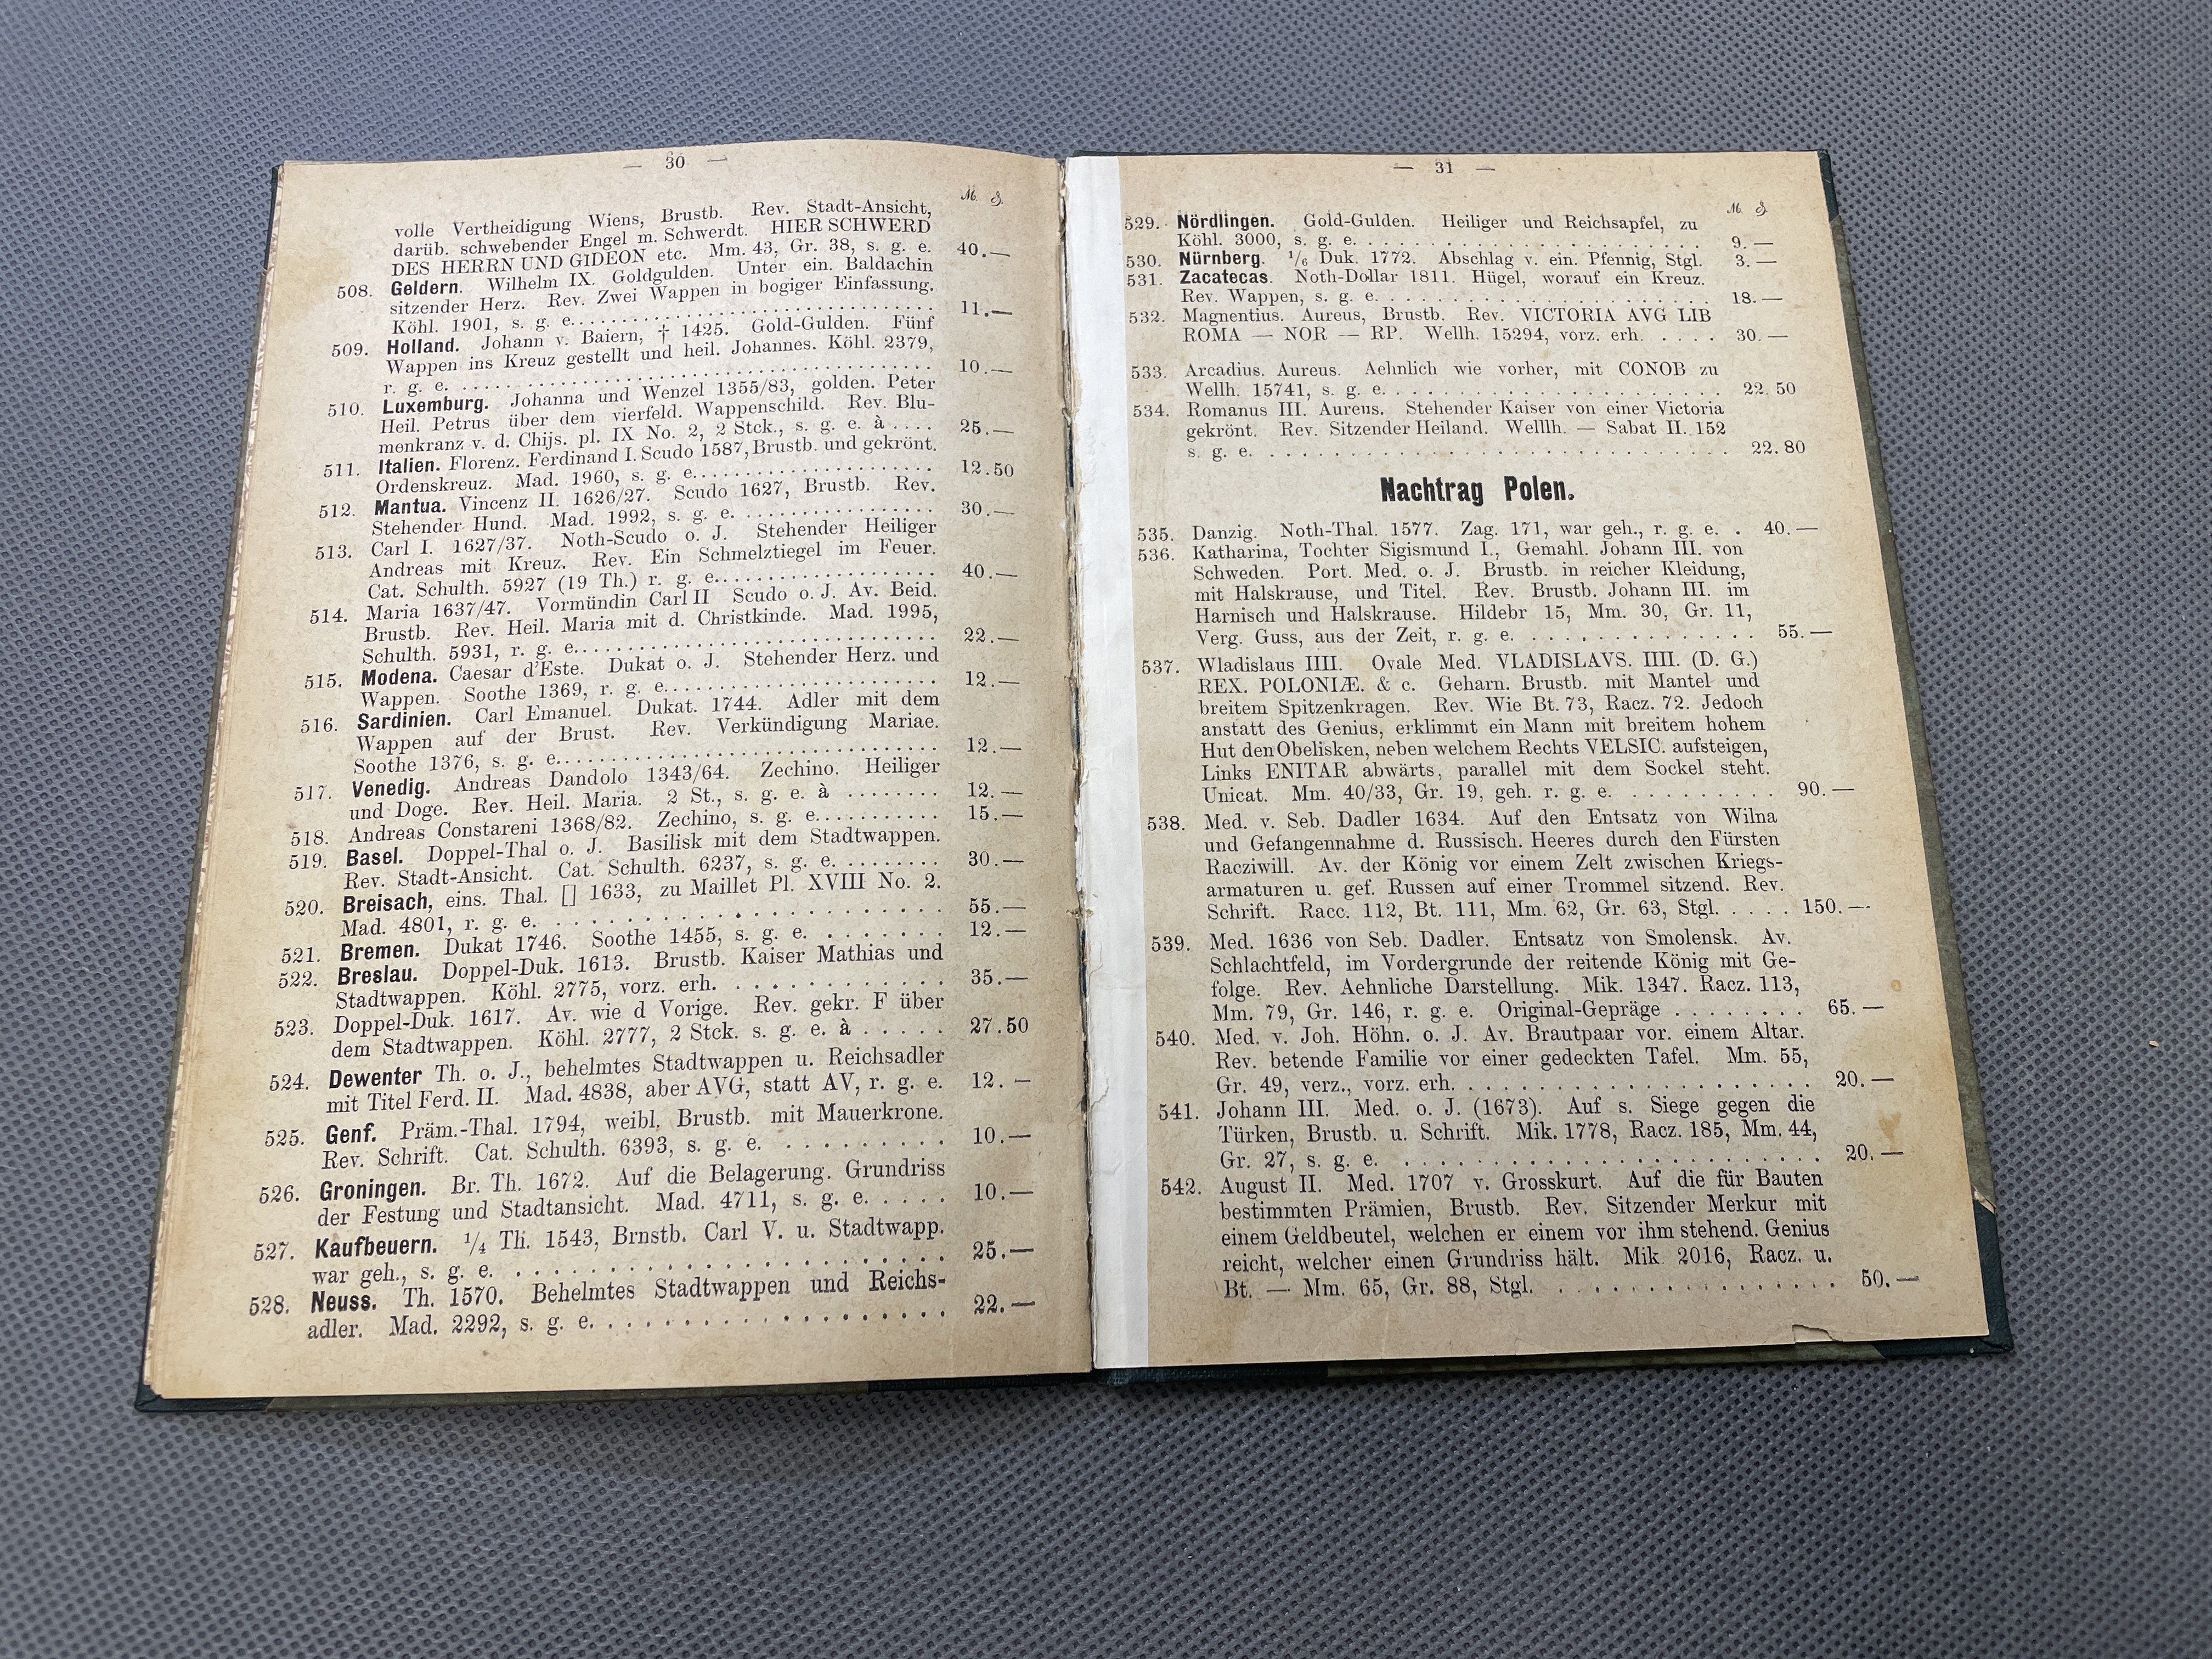 — 30 —
M. ₰.
volle Vertheidigung Wiens, Brustb. Rev. Stadt-Ansicht,
darüb. schwebender Engel m. Schwerdt. HIER SCHWERD
DES HERRN UND GIDEON etc. Mm. 43, Gr. 38, s. g. e. 40.—
508. Geldern. Wilhelm IX. Goldgulden. Unter ein. Baldachin
sitzender Herz. Rev. Zwei Wappen in bogiger Einfassung.
Köhl. 1901, s. g. e. . . . . . . . . . . 11.—
509. Holland. Johann v. Baiern, † 1425. Gold-Gulden. Fünf
Wappen ins Kreuz gestellt und heil. Johannes. Köhl. 2379,
r. g. e. . . . . . . . . . . 10.—
510. Luxemburg. Johanna und Wenzel 1355/83, golden. Peter
Heil. Petrus über dem vierfeld. Wappenschild. Rev. Blu-
menkranz v. d. Chijs. pl. IX No. 2, 2 Stck., s. g. e. à . . . . 25.—
511. Italien. Florenz. Ferdinand I. Scudo 1587, Brustb. und gekrönt.
Ordenskreuz. Mad. 1960, s. g. e. . . . . . . . . . . 12.50
512. Mantua. Vincenz II. 1626/27. Scudo 1627, Brustb. Rev.
Stehender Hund. Mad. 1992, s. g. e. . . . . . . . . . . 30.—
513. Carl I. 1627/37. Noth-Scudo o. J. Stehender Heiliger
Andreas mit Kreuz. Rev. Ein Schmelztiegel im Feuer.
Cat. Schulth. 5927 (19 Th.) r. g. e. . . . . . . . . . . 40.—
514. Maria 1637/47. Vormündin Carl II Scudo o. J. Av. Beid.
Brustb. Rev. Heil. Maria mit d. Christkinde. Mad. 1995,
Schulth. 5931, r. g. e. . . . . . . . . . . 22.—
515. Modena. Caesar d'Este. Dukat o. J. Stehender Herz. und
Wappen. Soothe 1369, r. g. e. . . . . . . . . . . 12.—
516. Sardinien. Carl Emanuel. Dukat. 1744. Adler mit dem
Wappen auf der Brust. Rev. Verkündigung Mariae.
Soothe 1376, s. g. e. . . . . . . . . . . 12.—
517. Venedig. Andreas Dandolo 1343/64. Zechino. Heiliger
und Doge. Rev. Heil. Maria. 2 St., s. g. e. à . . . . . . . . 12.—
518. Andreas Constareni 1368/82. Zechino, s. g. e. . . . . . . . . . . 15.—
519. Basel. Doppel-Thal o. J. Basilisk mit dem Stadtwappen.
Rev. Stadt-Ansicht. Cat. Schulth. 6237, s. g. e. . . . . . . . . 30.—
520. Breisach, eins. Thal. [] 1633, zu Maillet Pl. XVIII No. 2.
Mad. 4801, r. g. e. . . . . . . . . . . 55.—
521. Bremen. Dukat 1746. Soothe 1455, s. g. e. . . . . . . . 12.—
522. Breslau. Doppel-Duk. 1613. Brustb. Kaiser Mathias und
Stadtwappen. Köhl. 2775, vorz. erh. . . . . . . . . . . 35.—
523. Doppel-Duk. 1617. Av. wie d Vorige. Rev. gekr. F über
dem Stadtwappen. Köhl. 2777, 2 Stck. s. g. e. à . . . . . 27.50
524. Dewenter Th. o. J., behelmtes Stadtwappen u. Reichsadler
mit Titel Ferd. II. Mad. 4838, aber AVG, statt AV, r. g. e. 12.—
525. Genf. Präm.-Thal. 1794, weibl. Brustb. mit Mauerkrone.
Rev. Schrift. Cat. Schulth. 6393, s. g. e. . . . . . . . . . 10.—
526. Groningen. Br. Th. 1672. Auf die Belagerung. Grundriss
der Festung und Stadtansicht. Mad. 4711, s. g. e. . . . . 10.—
527. Kaufbeuern. 1/4 Th. 1543, Brnstb. Carl V. u. Stadtwapp.
war geh., s. g. e. . . . . . . . . . . 25.—
528. Neuss. Th. 1570. Behelmtes Stadtwappen und Reichs-
adler. Mad. 2292, s. g. e. . . . . . . . . . . 22.—
— 31 —
M. ₰.
529. Nördlingen. Gold-Gulden. Heiliger und Reichsapfel, zu
Köhl. 3000, s. g. e. . . . . . . . . . . 9.—
530. Nürnberg. 1/6 Duk. 1772. Abschlag v. ein. Pfennig, Stgl. 3.—
531. Zacatecas. Noth-Dollar 1811. Hügel, worauf ein Kreuz.
Rev. Wappen, s. g. e. . . . . . . . . . . 18.—
532. Magnentius. Aureus, Brustb. Rev. VICTORIA AVG LIB
ROMA — NOR — RP. Wellh. 15294, vorz. erh. . . . . 30.—
533. Arcadius. Aureus. Aehnlich wie vorher, mit CONOB zu
Wellh. 15741, s. g. e. . . . . . . . . . . 22.50
534. Romanus III. Aureus. Stehender Kaiser von einer Victoria
gekrönt. Rev. Sitzender Heiland. Welllh. — Sabat II. 152
s. g. e. . . . . . . . . . . 22.80
Nachtrag Polen.
535. Danzig. Noth-Thal. 1577. Zag. 171, war geh., r. g. e. . 40.—
536. Katharina, Tochter Sigismund I., Gemahl. Johann III. von
Schweden. Port. Med. o. J. Brustb. in reicher Kleidung,
mit Halskrause, und Titel. Rev. Brustb. Johann III. im
Harnisch und Halskrause. Hildebr 15, Mm. 30, Gr. 11,
Verg. Guss, aus der Zeit, r. g. e. . . . . . . . . . . 55.—
537. Wladislaus IIII. Ovale Med. VLADISLAVS. IIII. (D. G.)
REX. POLONIÆ. & c. Geharn. Brustb. mit Mantel und
breitem Spitzenkragen. Rev. Wie Bt. 73, Racz. 72. Jedoch
anstatt des Genius, erklimmt ein Mann mit breitem hohem
Hut den Obelisken, neben welchem Rechts VELSIC. aufsteigen,
Links ENITAR abwärts, parallel mit dem Sockel steht.
Unicat. Mm. 40/33, Gr. 19, geh. r. g. e. . . . . . . . . . 90.—
538. Med. v. Seb. Dadler 1634. Auf den Entsatz von Wilna
und Gefangennahme d. Russisch. Heeres durch den Fürsten
Racziwill. Av. der König vor einem Zelt zwischen Kriegs-
armaturen u. gef. Russen auf einer Trommel sitzend. Rev.
Schrift. Racc. 112, Bt. 111, Mm. 62, Gr. 63, Stgl. . . . . 150.—
539. Med. 1636 von Seb. Dadler. Entsatz von Smolensk. Av.
Schlachtfeld, im Vordergrunde der reitende König mit Ge-
folge. Rev. Aehnliche Darstellung. Mik. 1347. Racz. 113,
Mm. 79, Gr. 146, r. g. e. Original-Gepräge . . . . . . . . 65.—
540. Med. v. Joh. Höhn. o. J. Av. Brautpaar vor. einem Altar.
Rev. betende Familie vor einer gedeckten Tafel. Mm. 55,
Gr. 49, verz., vorz. erh. . . . . . . . . . . 20.—
541. Johann III. Med. o. J. (1673). Auf s. Siege gegen die
Türken, Brustb. u. Schrift. Mik. 1778, Racz. 185, Mm. 44,
Gr. 27, s. g. e. . . . . . . . . . . 20.—
542. August II. Med. 1707 v. Grosskurt. Auf die für Bauten
bestimmten Prämien, Brustb. Rev. Sitzender Merkur mit
einem Geldbeutel, welchen er einem vor ihm stehend. Genius
reicht, welcher einen Grundriss hält. Mik 2016, Racz. u.
Bt. — Mm. 65, Gr. 88, Stgl. . . . . . . . . . . 50.—